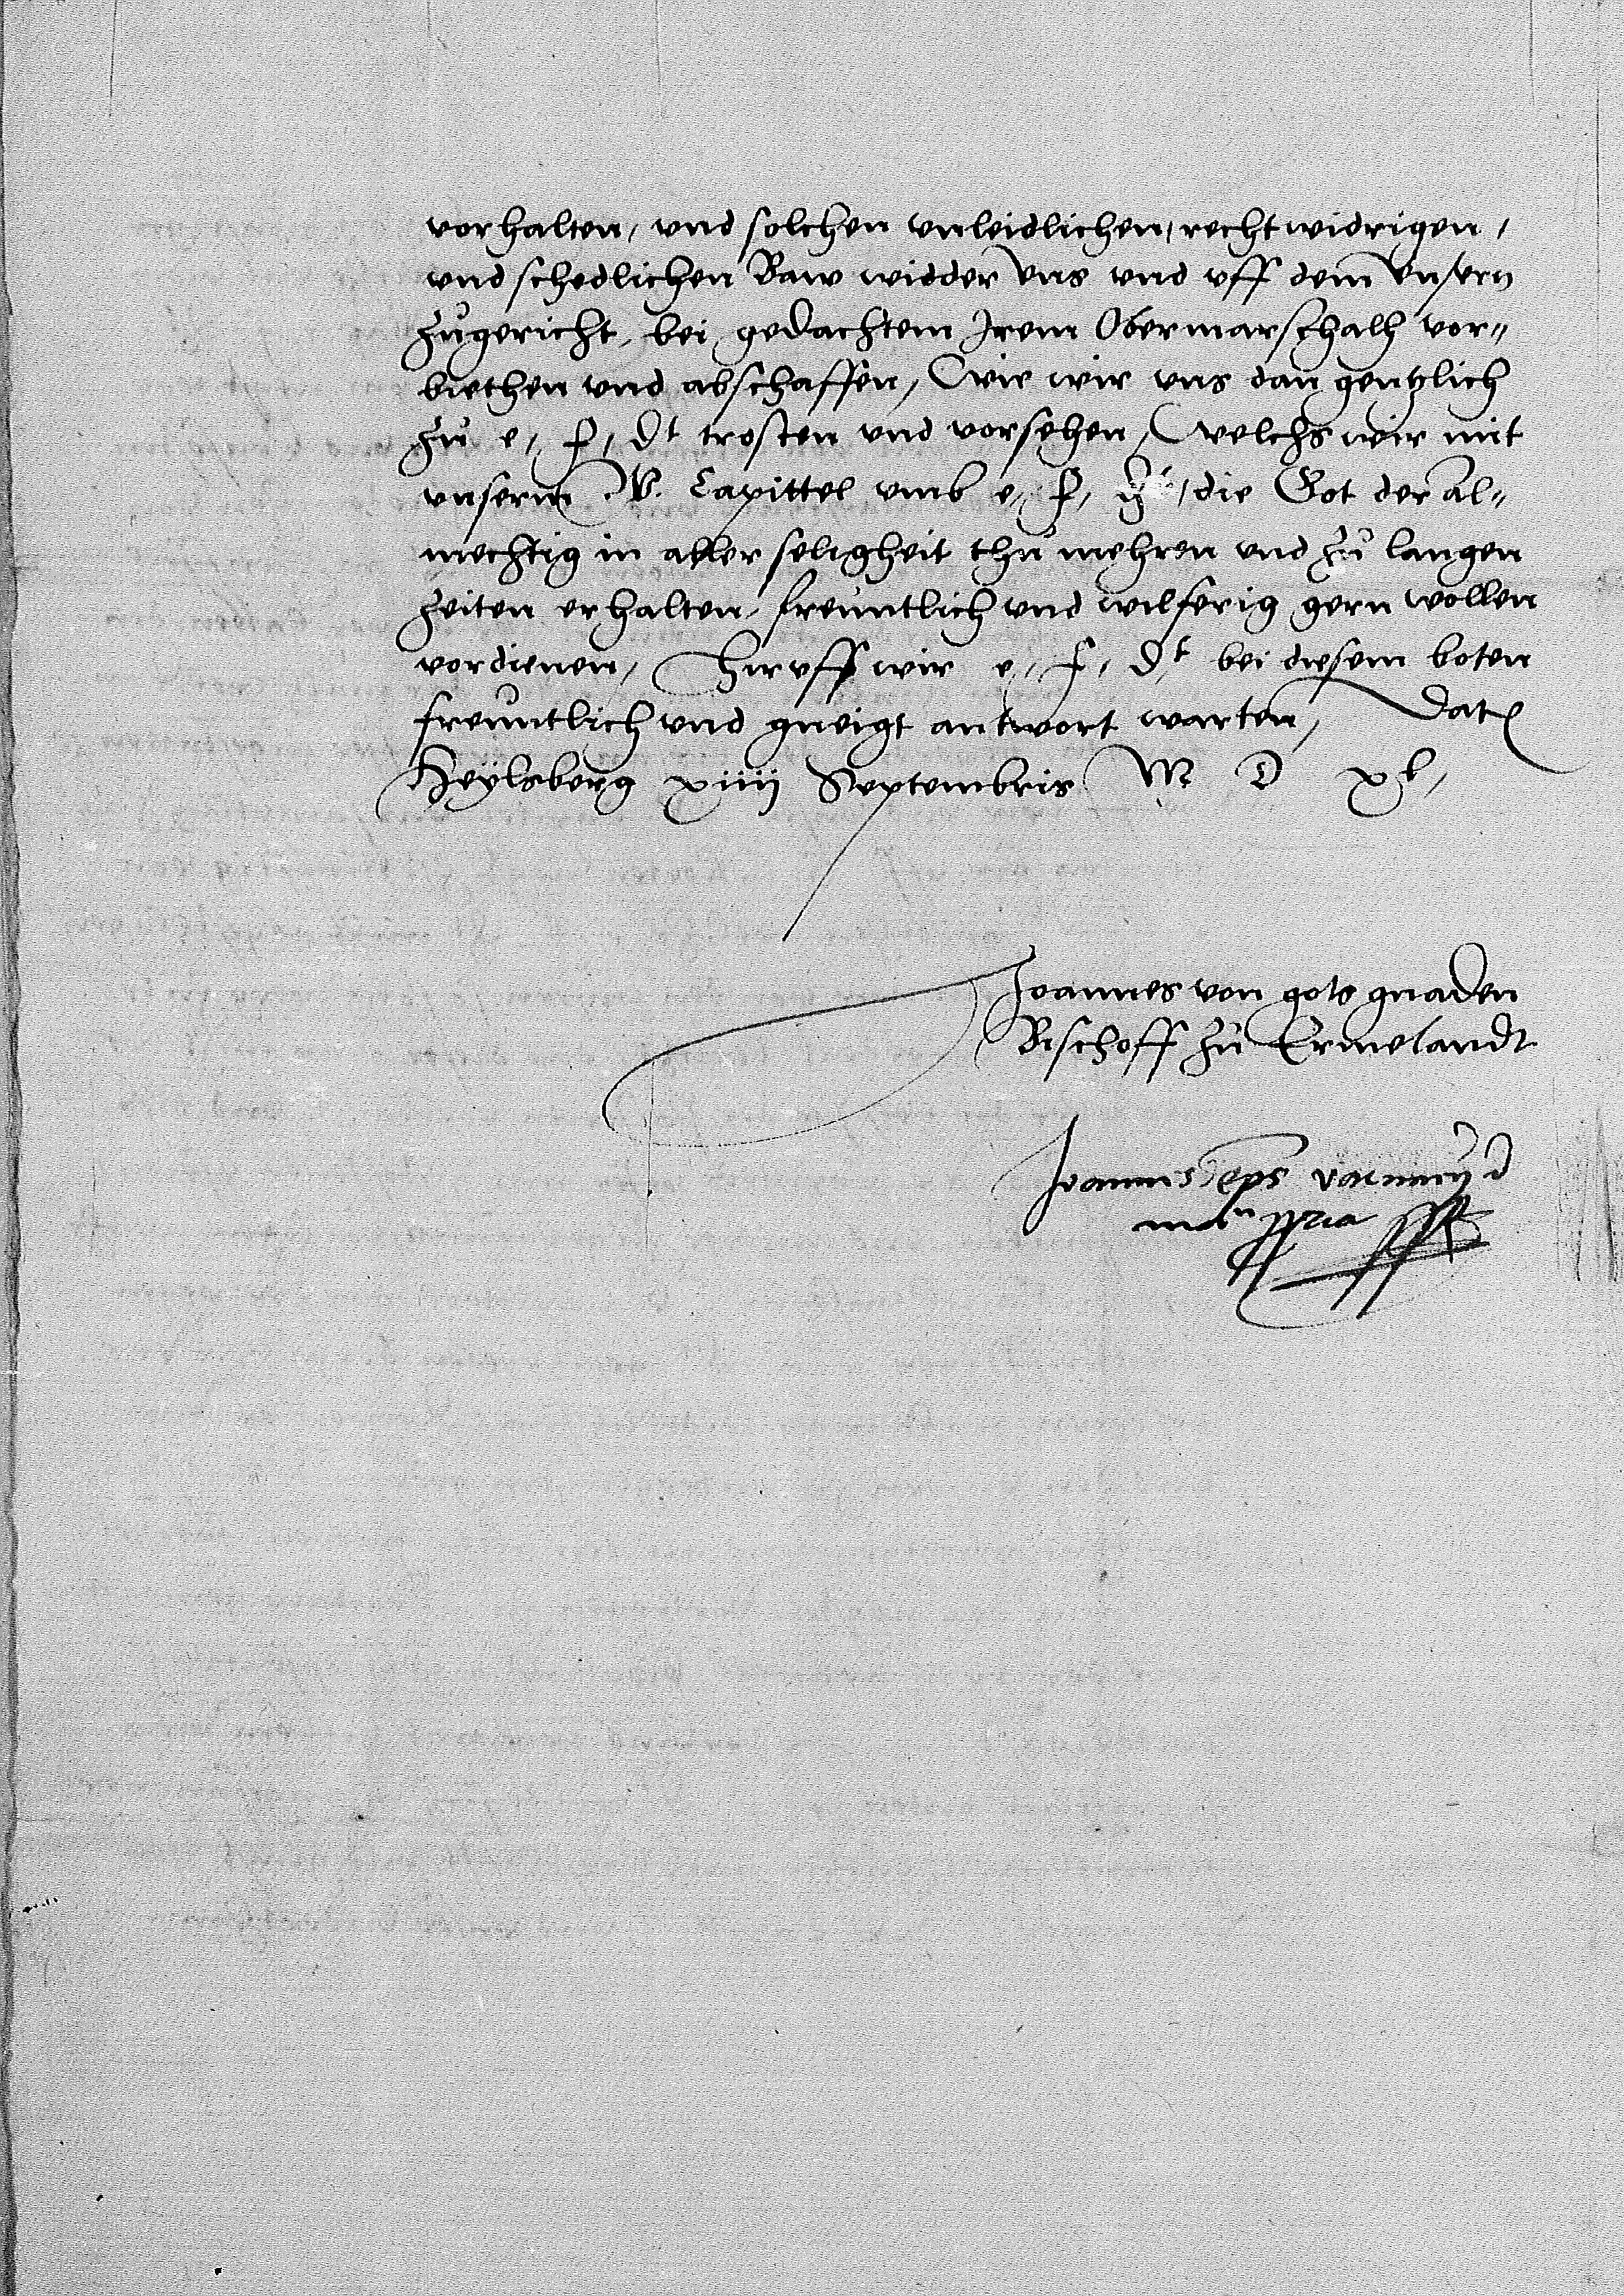 vorhalten, und solchen unleidlichen, recht widrigen,
und schedlichen Baw widder uns und uff dem unsern
zugericht, bei gedachtem Irem Obermarschalh vor-
biethen und abschaffen, Wie wir uns dan gentzlich
zu e, f, dt trosten und vorsehen, Welchs wir mit
unserm W. Capittel umb e, f, dt, die Got der al-
mechtig in aller seligheit thu mehren und zu langen
zeiten erhalten, freuntlich und wilferig gern wollen
vordienen, Hiruff wir e, f, dt, bei diesem boten
freuntlich und gneigt antwort warten, Dat
Heylsberg xiiii Septembris M D xl,
Joannes von gots gnaden
Bischoff zu Ermelandt
Joannes eps
man ppria